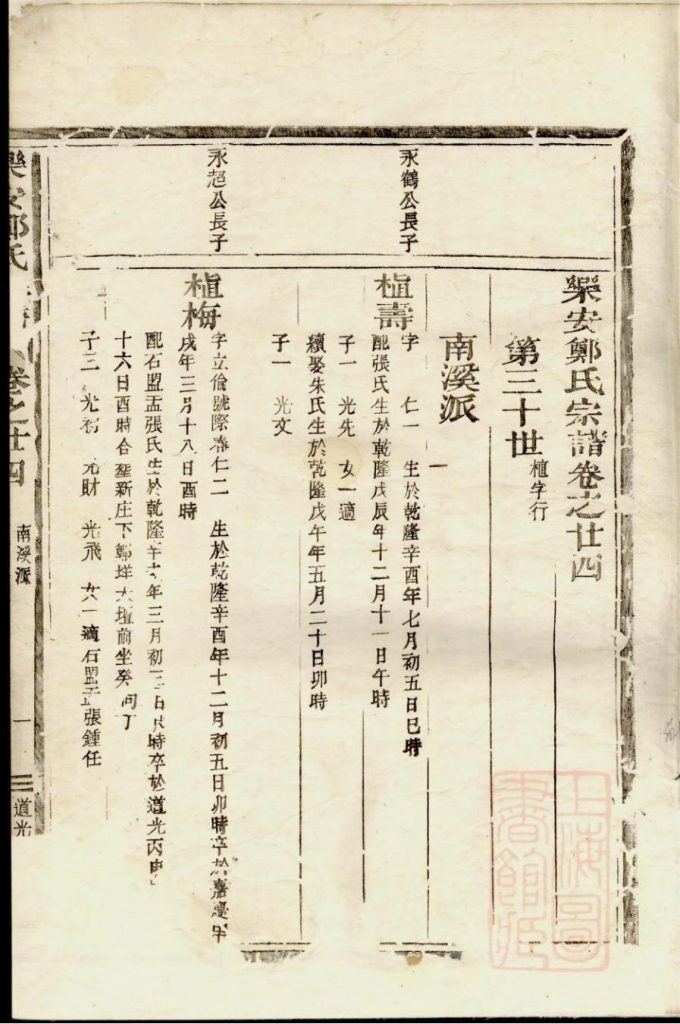 樂安鄭氏宗譜卷之廿四
第三十世 植字行
南溪派
永鶴公長子
植壽
字 仁一 生於乾隆辛酉年七月初五日巳時
配張氏生於乾隆戊辰年十二月十一日午時
子一 光先 女一適
續娶朱氏生於乾隆戊午年五月二十日卯時
子一 光文
永超公長子
植梅
字立倫號際春仁二 生於乾隆辛酉年十二月初五日卯時卒於嘉慶甲
戌年三月十八日酉時
配石盟盂張氏生於乾隆辛 年三月初三日 時卒於道光丙申
十六日酉時合塟新庄下 垟 壇前坐癸向丁
子三 光 光財 光飛 女一適石盟 張鍾任
樂安鄭氏 卷之廿四
南溪派
一
道光
上海圖書館藏